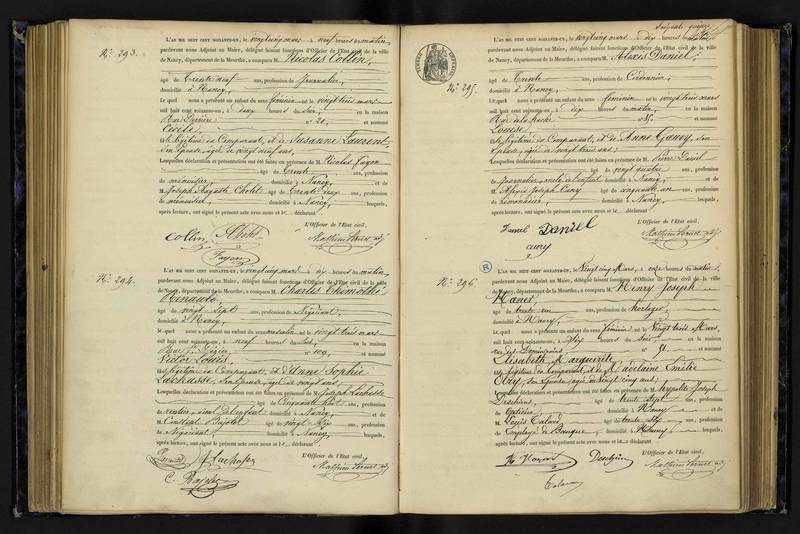 N.° 293.
L'AN MIL HUIT CENT SOIXANTE-UN, le vingt cinq mars à neuf heures du matin,
pardevant nous Adjoint au Maire, délégué faisant fonctions d'Officier de l'État civil de la ville
de Nancy, département de la Meurthe, a comparu M. Nicolas Collin,
âgé de trente neuf ans, profession de Journalier,
domicilié à Nancy,
Lequel nous a présenté un enfant du sexe féminin né le vingt trois mars
mil huit cent soixante-un, à deux heures du soir, en la maison
n° 20, et nommé
Cécile,
fille légitime du Comparant, et de Susanne Laurent,
son Epouse, âgée de vingt neuf ans,
Lesquelles déclaration et présentation ont été faites en présence de M. Nicolas Fayon
âgé de trente ans, profession
de menuisier, domicilié à Nancy, et de
M. Joseph Auguste Cholet âgé de trente deux ans, profession
de menuisier, domicilié à Nancy, lesquels,
après lecture, ont signé le présent acte avec nous et le déclarant
L'Officier de l'État civil,
Collin
Fayon
N.° 294.
L'AN MIL HUIT CENT SOIXANTE-UN, le vingt cinq mars à dix heures du matin,
pardevant nous Adjoint au Maire, délégué faisant fonctions d'Officier de l'État civil de la ville
de Nancy, département de la Meurthe, a comparu M. Charles Thimothé
Renauld
âgé de vingt sept ans, profession de Négociant,
domicilié à Nancy,
Lequel nous a présenté un enfant du sexe masculin né le vingt trois mars
mil huit cent soixante-un, à neuf heures du soir, en la maison
n° 109, et nommé
Victor Louis,
fils légitime du Comparant, et d'Anne Sophie
Lachasse, son Epouse, âgée de vingt ans,
Lesquelles déclaration et présentation ont été faites en présence de M. Joseph Lachasse
âgé de cinquante huit ans, profession
de rentier, aïeul de l'enfant domicilié à Nancy, et de
M. Constant âgé de vingt six ans, profession
de Négociant, domicilié à Nancy, lesquels,
après lecture, ont signé le présent acte avec nous et le déclarant
L'Officier de l'État civil,
Renauld Lachasse
TIMBRE IMPÉRIAL
N.° 295.
L'AN MIL HUIT CENT SOIXANTE-UN, le vingt cinq mars à dix heures du matin,
pardevant nous Adjoint au Maire, délégué faisant fonctions d'Officier de l'État civil de la ville
de Nancy, département de la Meurthe, a comparu M. Alexis Daniel,
âgé de trente ans, profession de Cordonnier,
domicilié à Nancy,
Lequel nous a présenté un enfant du sexe féminin né le vingt trois mars
mil huit cent soixante-un, à dix heures du matin, en la maison
Rue de la hache n° 35, et nommé
Louise,
fille légitime du Comparant, et de Anne Gavoy, son
Epouse, âgée de vingt trois ans,
Lesquelles déclaration et présentation ont été faites en présence de M. Pierre Daniel
âgé de vingt quatre ans, profession
de Journalier, oncle de l'enfant domicilié à Nancy, et de
M. Joseph Cuny âgé de cinquante un ans, profession
de domicilié à Nancy, lesquels,
après lecture, ont signé le présent acte avec nous et le déclarant
L'Officier de l'État civil,
Daniel DANIEL
cuny
R
N.° 296.
L'AN MIL HUIT CENT SOIXANTE-UN, le Vingt cinq Mars, à onze heures du matin,
pardevant nous Adjoint au Maire, délégué faisant fonctions d'Officier de l'État civil de la ville
de Nancy, département de la Meurthe, a comparu M. Henry Joseph
Hanet,
âgé de trente un ans, profession de Horloger,
domicilié à Nancy,
Lequel nous a présenté un enfant du sexe féminin né le Vingt trois Mars,
mil huit cent soixante-un, à dix heures du Soir, en la maison
rue des Dominicains n° 51, et nommé
Elisabeth Marguerite
fille légitime du Comparant, et de Adelaine Emilie
son Epouse, âgée de vingt cinq ans,
Lesquelles déclaration et présentation ont été faites en présence de M. Hyppolite Joseph
âgé de trente sept ans, profession
de Opticien, domicilié à Nancy et de
M. Louis âgé de trente six ans, profession
de Employé de Banque, domicilié à Nancy, lesquels,
après lecture, ont signé le présent acte avec nous et le déclarant
L'Officier de l'État civil,